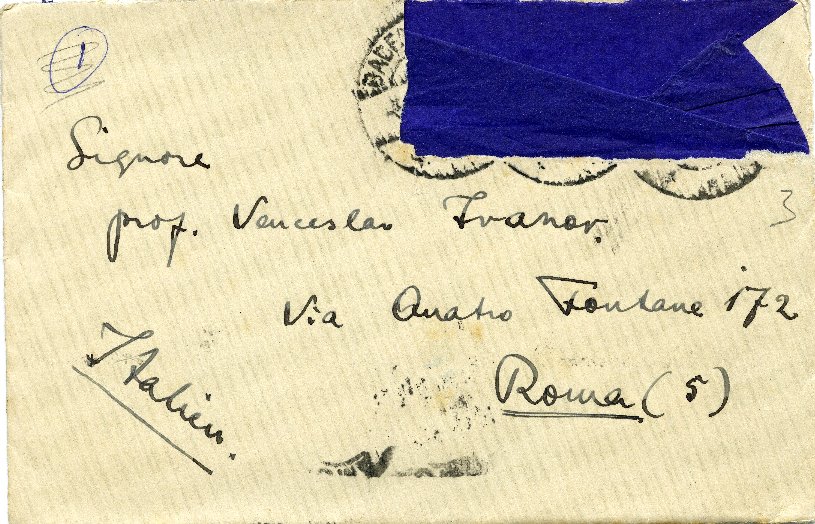 1
BASE
3
Signore
prof. Venceslao Ivanov.
Via Quatro Fontane 172
Roma (5)
Italien.